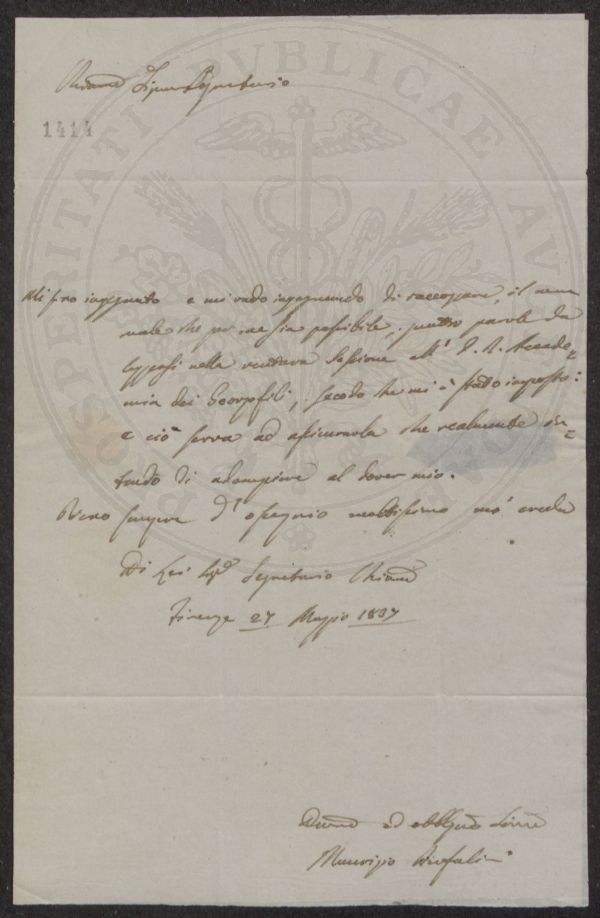 Chiarmo Signor Segretario
1414
PROSPERITATI PUBLICAE AU
Mi sono ingegnato e mi vado ingegnando di raccozzare, il men
male che per me sia possibile, quattro parole da
leggersi nella ventura Sessione all' I. R. Accade=
mia dei Georgofili, secodo che mi è stato imposto:
e ciò serva ad assicurarla che realmente in=
tendo di adempiere al dover mio.
Pieno sempre d' ossequio moltissimo mi creda
Di Lei Sigr Segretario Chiarmo
Firenze 27 Maggio 1837
Devmo ed obbligmo Servre
Maurizio Bufalini